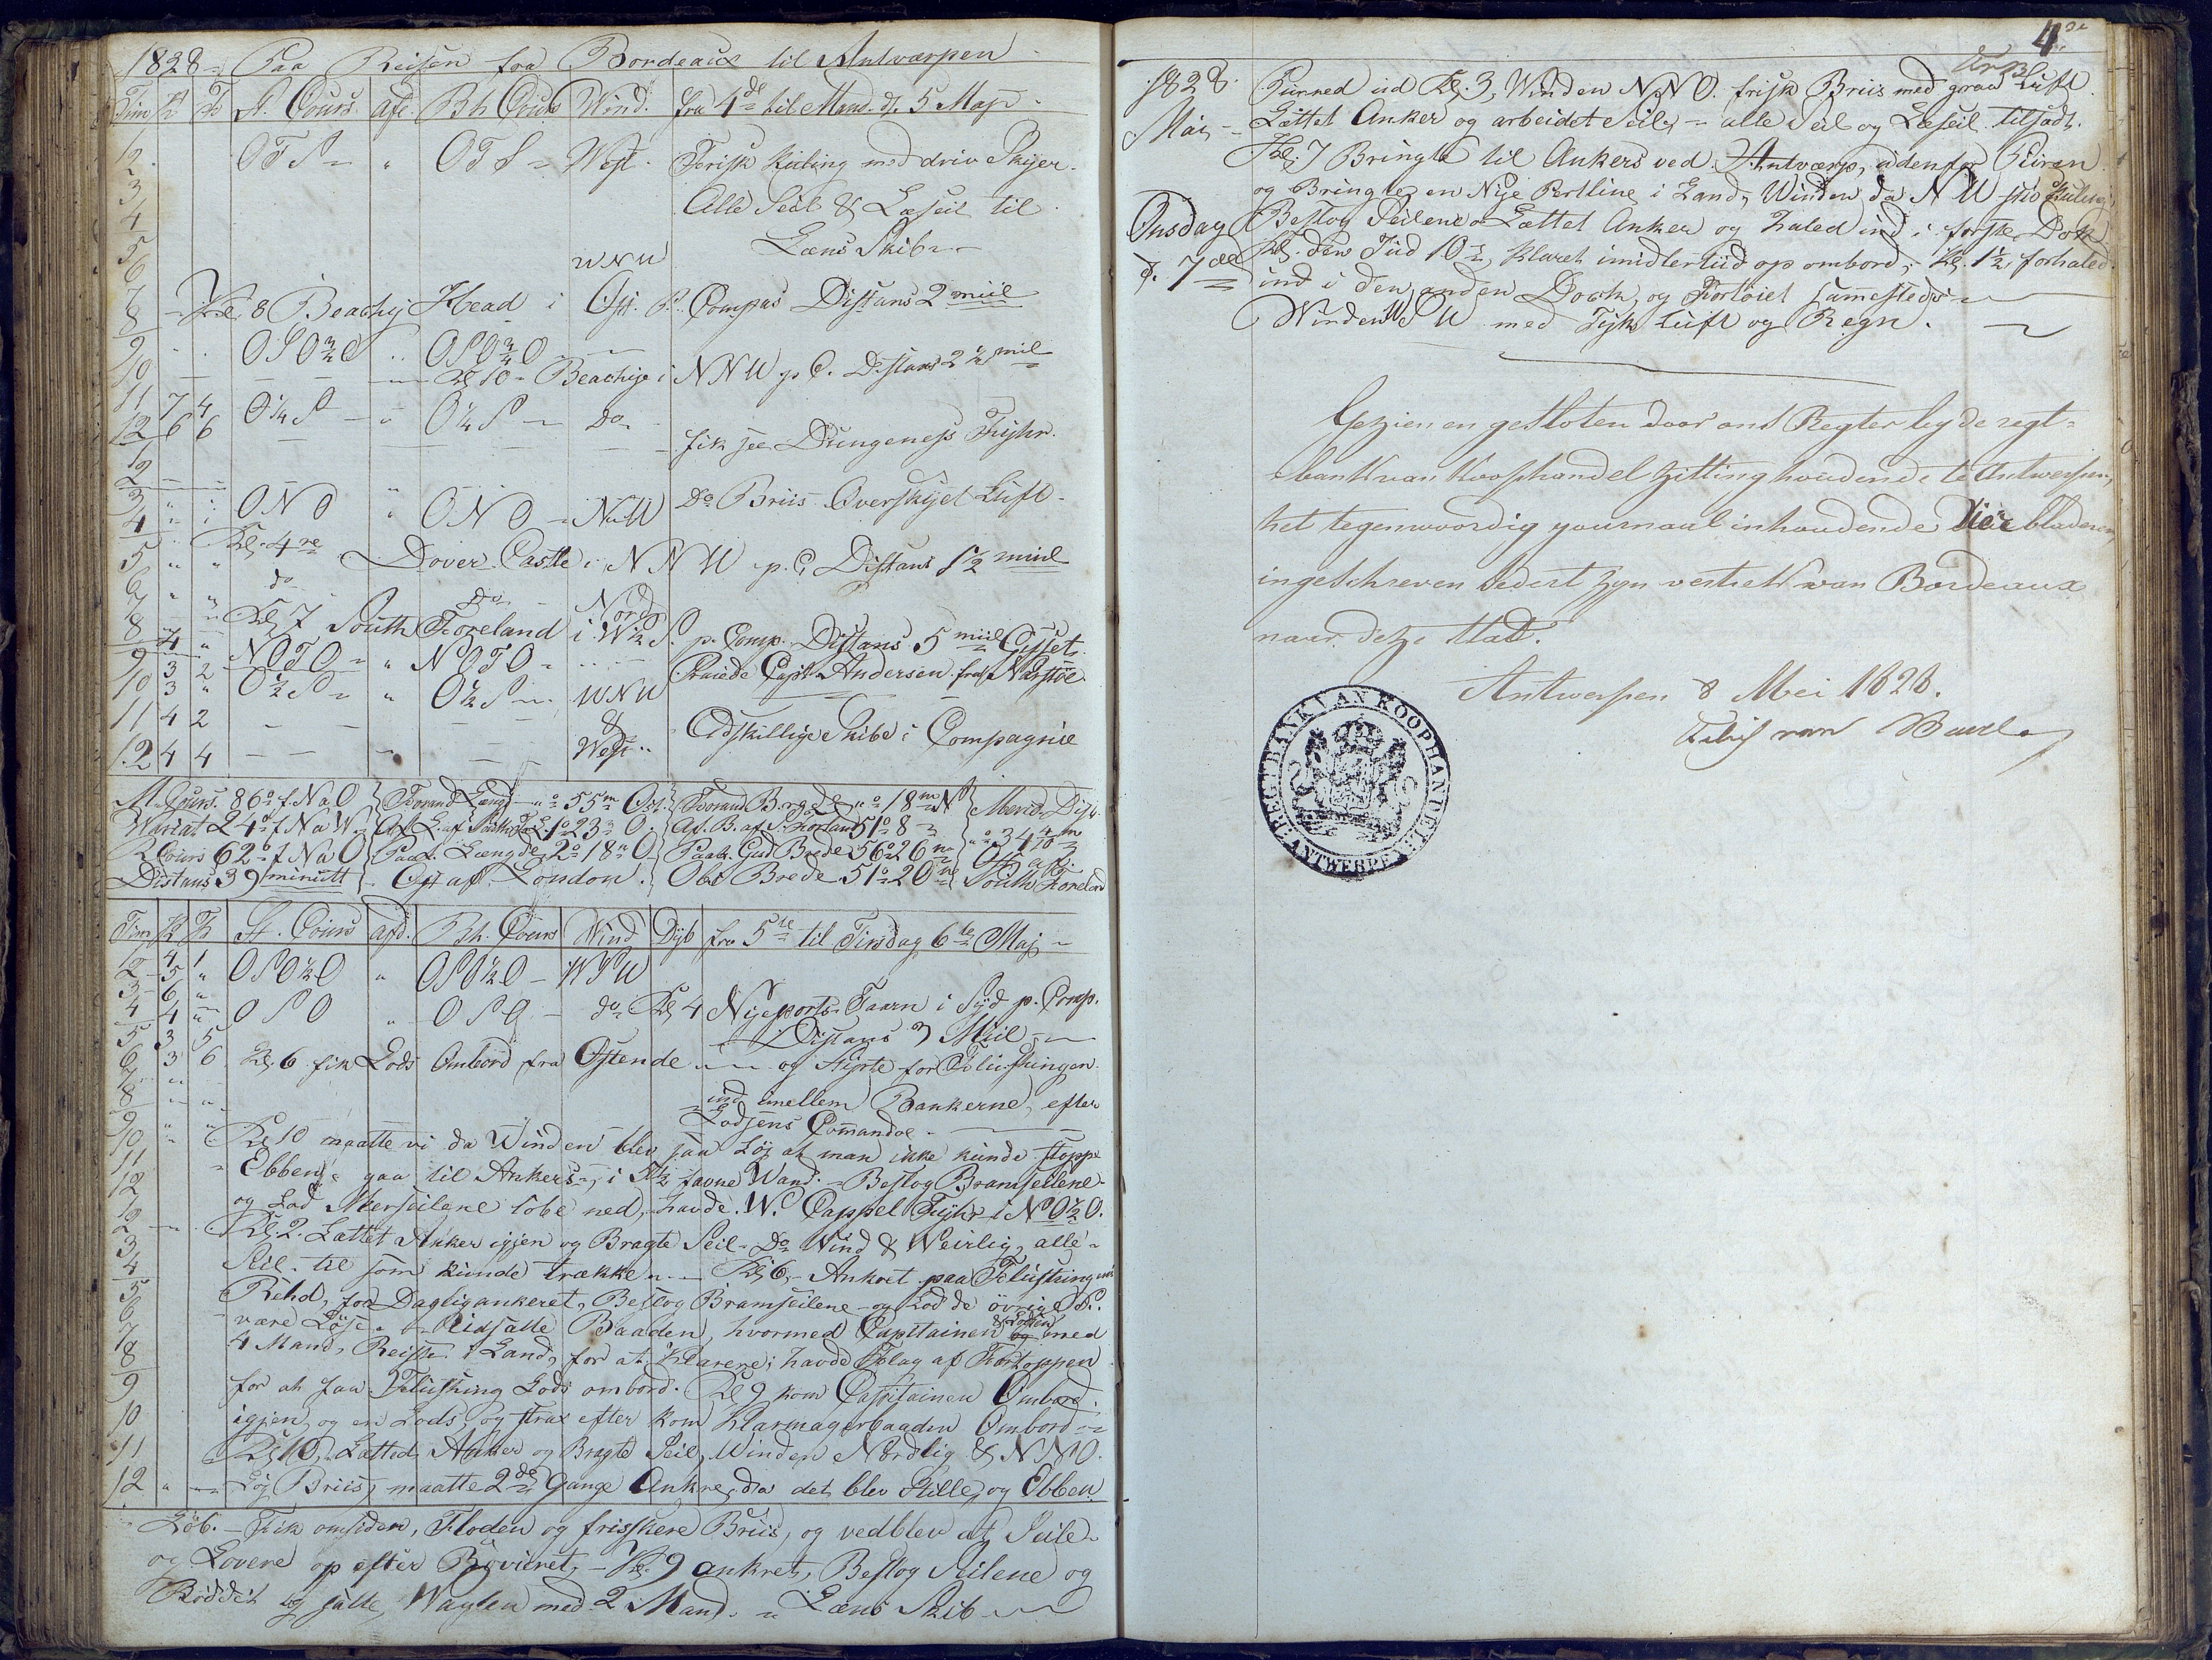 1828 - Paa Reisen fra Bordeaux til Antværpen -
Tim K F St. Cours. afd. Bh Cours Wind. fra 4de til Mand. d. 5 Maj -
12. OTS - " OTS - West - Frisk Kuling med driv Skyer.
2
3 Alle Seil & Læseil til
4
5 Læns Skib -
6 WNW
7
8 - Kl. 8 Beachy Head i Ost. P. Compas Distans 2 miil
9 OSO¾O " OSO¾O
10 - Kl. 10 - Beachy i NNW p C. Distans 2¼ mil
11 7 4 O¼S - " O¼S - Do
12 6 6 fik see Dungeness Fyhr.
12
2
3 " " ONO " ONO - NW Do Briis Overskyet Luft -
4
5 " " Kl. 4 re Dover Castle i NNW p. C, Distans 1½ miil
6 " " do Do Nord
7 " " Kl. 7 South Foreland i W½S p. Comp. Distans 5 miil Gisset.
8 4 " NOTO - " NOTO -
9 3 2 Praiede Capt. Andersen fra Narstöe
10 3 " O½S - " O½S - WNW
11 4 2 & Adskillige Skibe i Compagnie
12 4 4 West "
M. Cours. 86° f. NaO Forand Længd " ° 55m Ost. Forand B.rede " ° 18m N Merid. Dist.
Wariat 24° f. NaW Af L. af South For. 1° 23 O. Af. B. af S. Forland 51° 8 " ° 34 4/10 m
R Cours 62° f NaO Paak. Længde 2° 18 O Paak. Gud Brede 56° 26 m Ost af
Distans 39 minutt Ost af London. Obs Brede 51° 20 South Foreland
Tim K F St. Cours afd. Bh. Cours Wind Dyb fra 5te til Tirsdag 6te Maj -
12 4 1 OSO½O " OSO½O - WSW
2 5 "
3 6 "
4 4 " OSO " OSO - do Kl. 4 Nyeports Taarn i Syd p. Comp.
5 3 5 Distans 3 Miil
6 3 6 Kl. 6 fik Lods Ombord fra Ostende - og Styrte for Fliessingen
7
8 " " ind imellem Bankerne, efter
9 " " Lodsens Comandoe -
10 " Kl. 10 maatte vi da Winden blev saa Löj at man ikke kunde stoppe
11 Ebben, gaa til Ankers, i 5½ favne Wand. - Beslog Bramseilene -
12 og Lod Merseilene löbe ned, havde W. Cappel Fyhr i NO½O.
12
2 Kl. 2. Lættet Anker igjen og Bragte Seil - Do Wind & Weirlig, alle -
3 Seil. til som kunde trække - Kl. 6, - Ankret paa Flussing
4
5 Rehd, for Dagligankeret, Beslog Bramseilene - og Lod de övrige S.
6 være Löse - Udsatte Baaden, hvormed Capitainen & Lodsen med
7 4 Mand, Reiste i Land, for at Klarere, havde Flag af Fortoppen
8 for at faa Flushing Lods ombord. Kl 9 kom Capitainen Ombord.
9
10 igjen, og en Lods, og strax efter kom Klarmagerbaaden Ombord -
11 Kl. 10, Lætted Anker og Bragte Seil, Winden Nordlig & NNO.
12 " - Löj Briis, maatte 2de Gange Ankre, da det blev Stille, og Ebben
Löb. - Fik omsiden, Floden og friskere Briis, og vedblev at Seile
og Lovere op efter Röevieret, - Kl. 9 ankret, Beslog Seilene og
Röddet og satte Wagten med 2 Mand. - Læns Skib -
4de
1828. Purred ud Kl. 3, Winden NNO. frisk Briis med graa Luft.
Mai - Lættet Anker og arbeidet Seile, - alle Seil og Læseil tilsadt.
Kl. 7 Bringte til Ankers ved Antwerp, udenfor Byen
og Bringte en Nye Pertline i Land, Winden da NW fris Kuling,
Onsdag Beslog Seilene Lættet Anker og haled ind i förste Dok
d. 7de Kl. den Tiid 10, Klaret imidlertiid op ombord, Kl. 1½, forhaled
ind i den anden Dock, og Fortöiet samestedr
Winden WSW med Tyk Luft og Regn. -
Gezien en gesloten door ons Regter by de regt=
bank van Koophandel zitting houdende te Antwerpen,
het tegenwoordig yournaal inhoudende Vier bladeren
ingeschreven sedert zyn vertrek van Bordeaux
naar deze Stad.
Antwerpen 8 Mei 1828.
REGTBANK VAN KOOPHANDEL
ANTWERPEN